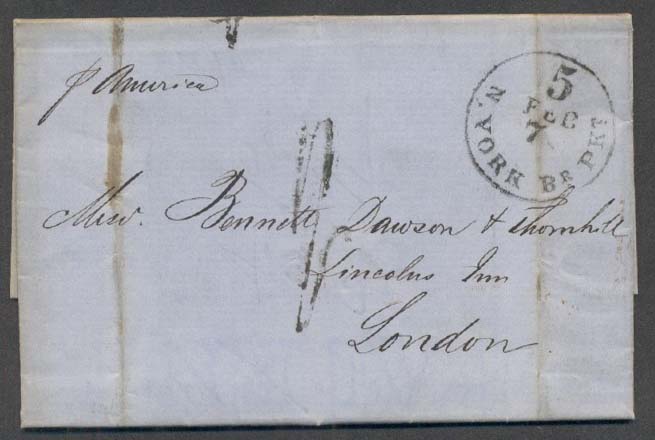 p America
5
N. YORK BR PKT
DEC
7
Messrs. Bennett, Dawson & Thornhill
Lincolns Inn
London